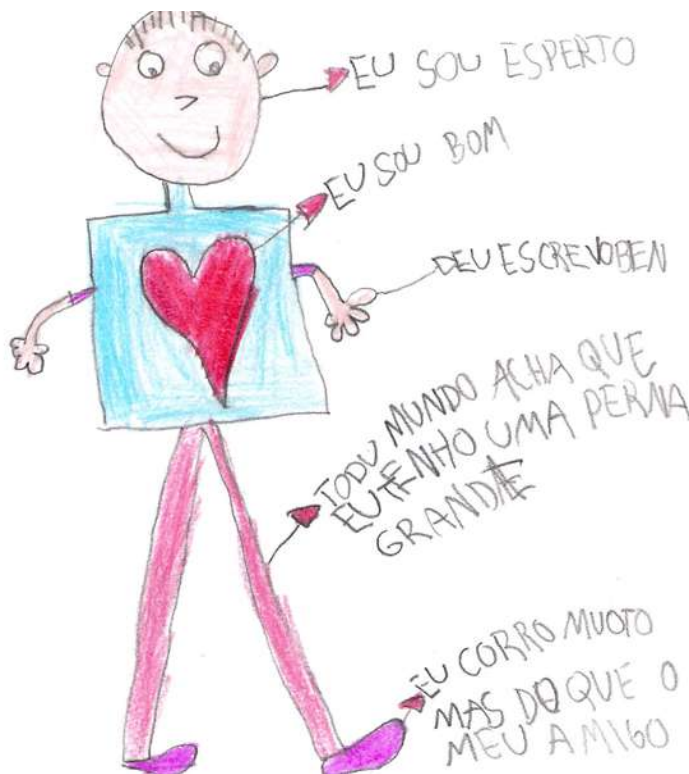 EU SOU ESPERTO
EU SOU BOM
DEU ESCREVO BEN
TODU MUNDO ACHA QUE
EU TENHO UMA PERNA
GRANDE
EU CORRO MUOTO
MAS DO QUE O
MEU AMIGO